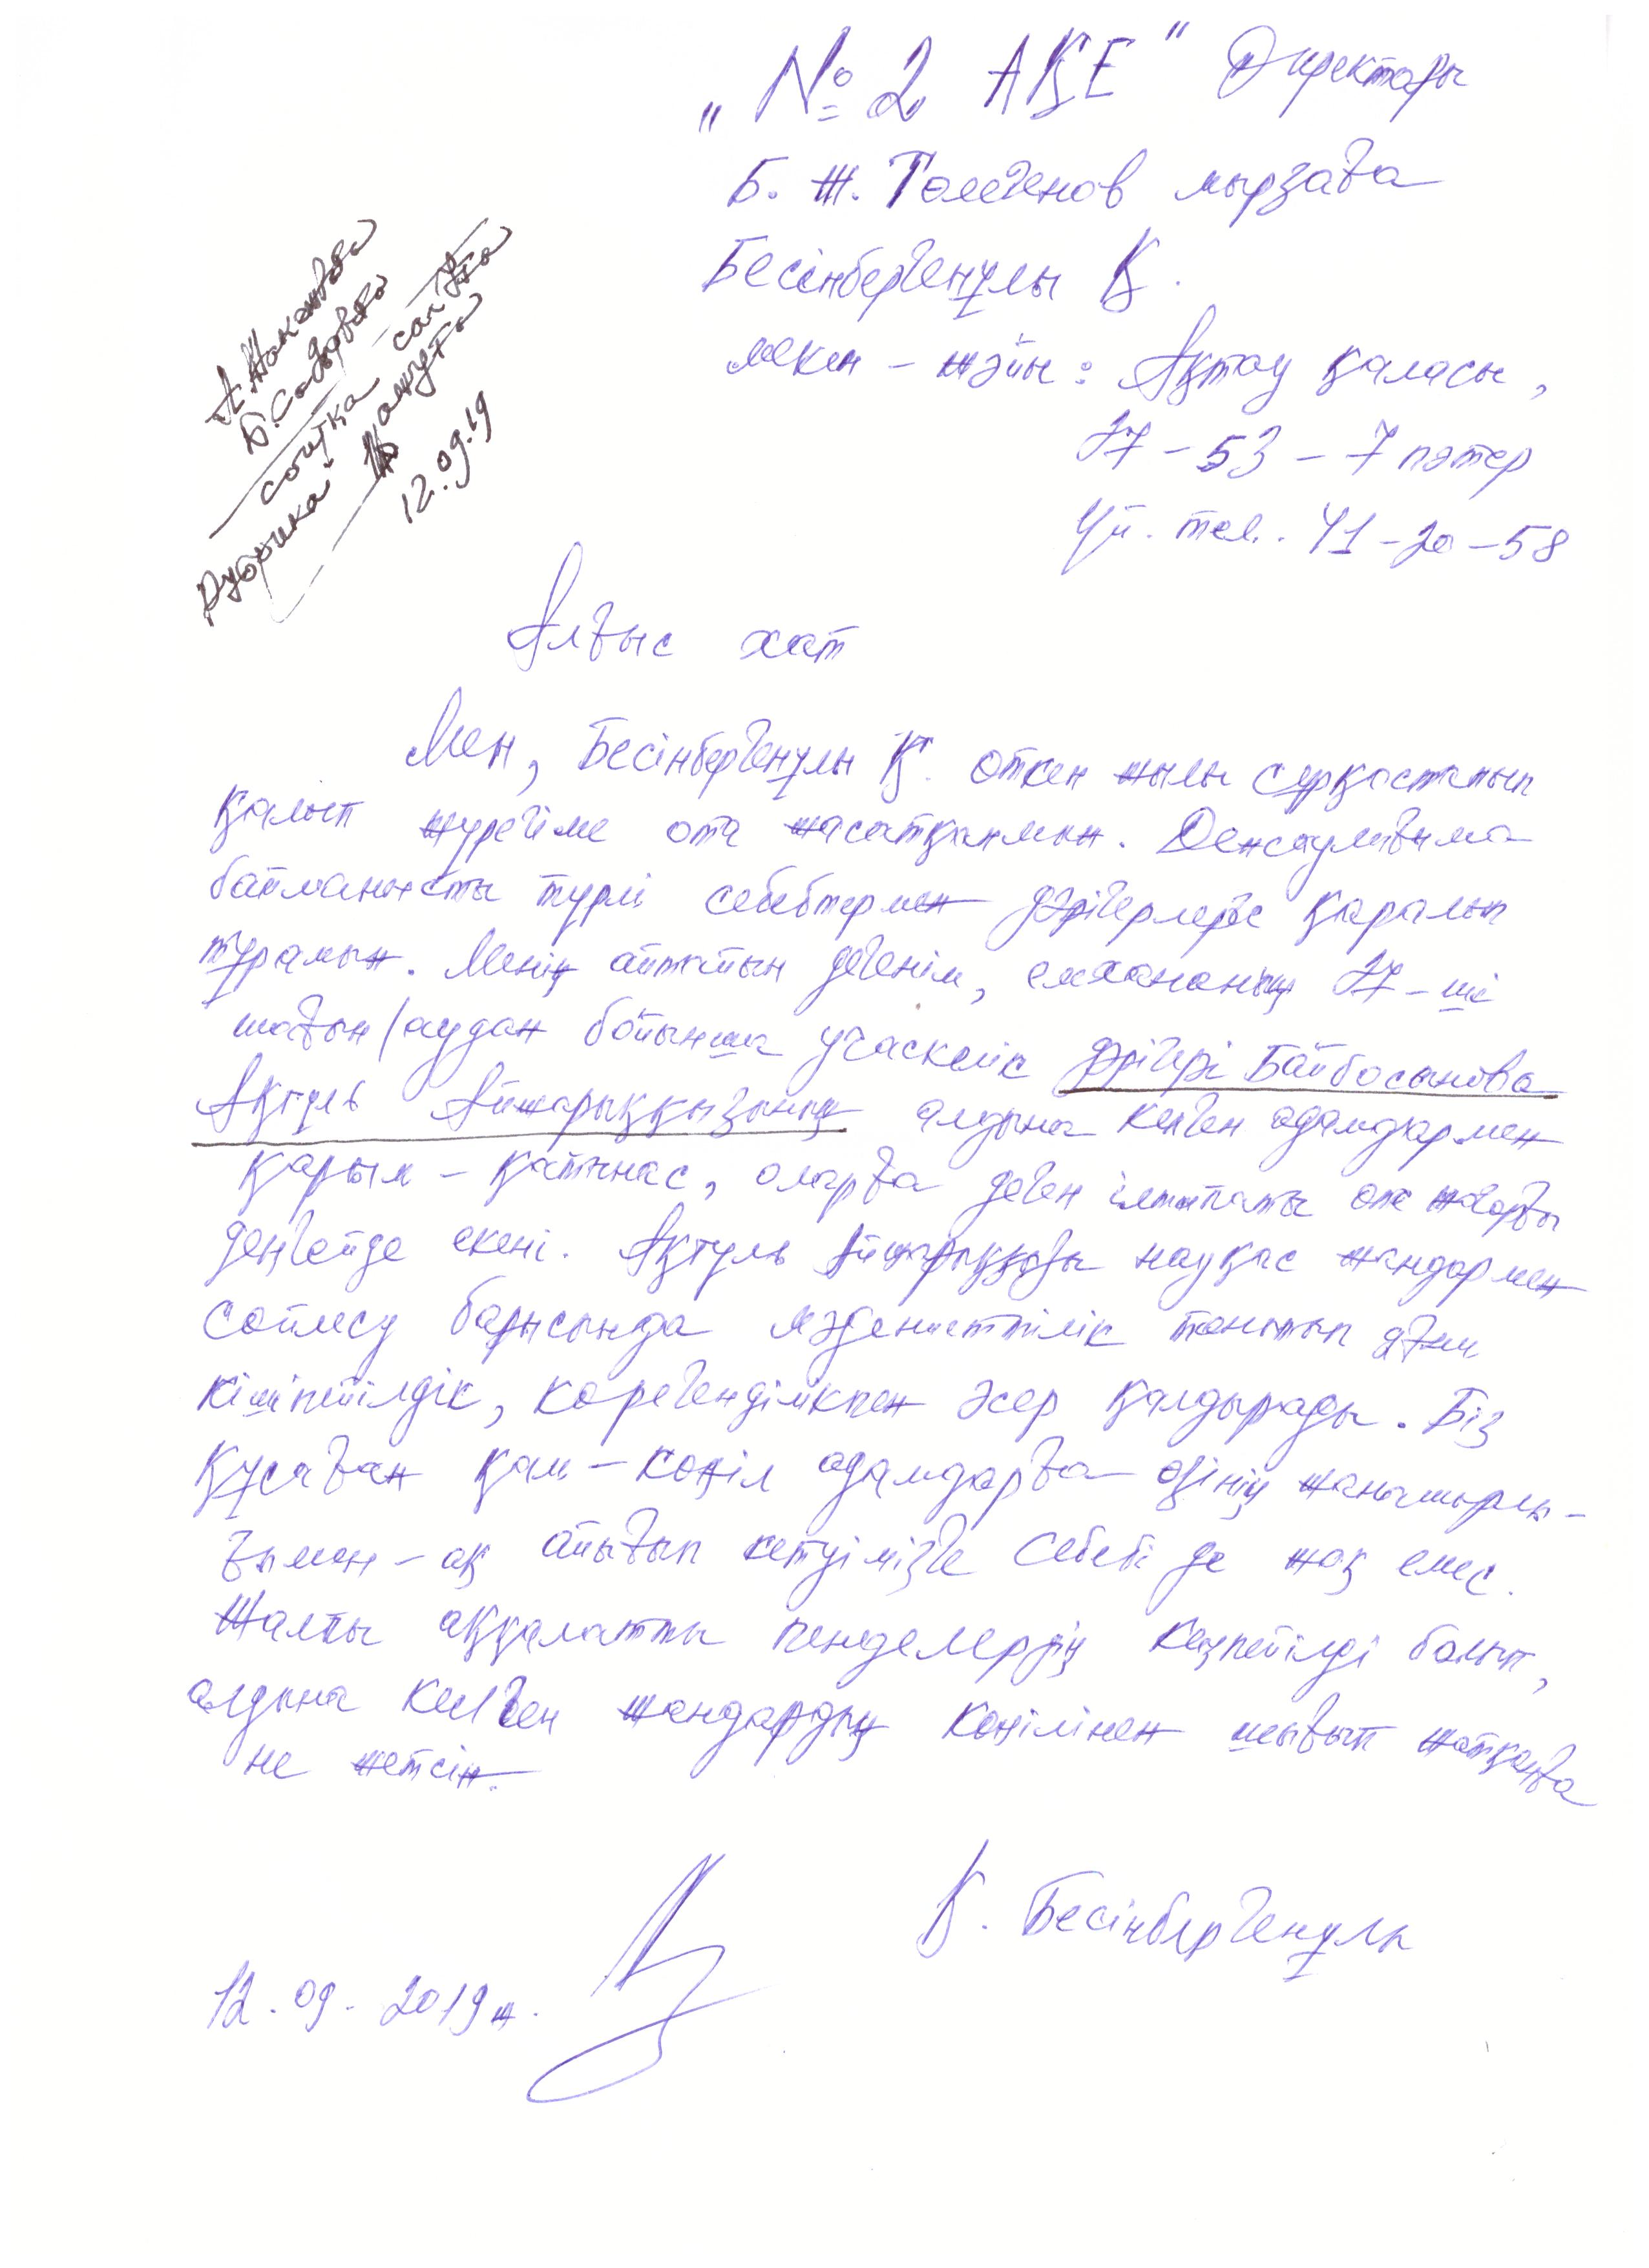 „№2 АҚЕ" Директоры
Б. Ж. Төлегенов мырзаға
Бесінбергенұлы Қ.
мекен - жәйы: Ақтау қаласы,
27 - 53 - 7 пәтер
Үй. тел. 41-20-58
Б. Садырова
сайтқа
12.09.19
Алғыс хат
Мен, Бесінбергенұлы Қ. өткен жылы сырқаттанып
қалып жүрегіме ота жасатқанмын. Денсаулығыма
байланысты түрлі себебтермен дәрігерлерге қаралып
тұрамын. Менің айтайын дегенім, емхананың 27-ші
шағын/аудан бойынша учаскелік дәрігері Байбосынова
Ақгуль Айжарыққызының алдына келген адамдармен
қарым - қатынас, оларға деген ілтипаты өте жоғарғы
деңгейде екені. Ақгуль Айжарыққызы науқас жандармен
сөйлесу барысында мәдениеттілік танытып
кішіпейілдік, көрегенділікпен әсер қалдырады. Біз
құсаған қам - көңіл адамдарға өзінің жанашырлы-
ғымен - ақ айығып кетуімізге себебі де жоқ емес.
Жалпы аққалатты пенделердің кеңпейілді болып,
алдына келген жандардың көңілінен шығып жатқанға
не жетсін.
Қ. Бесінбергенұлы
12. 09. 2019 ж.